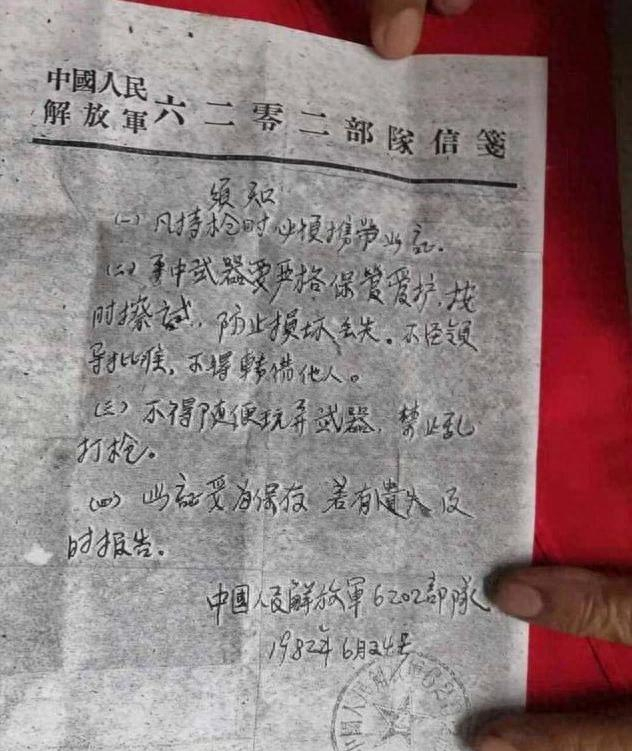 中國人民
解放軍六二零二部隊信箋
须知
(一)凡持枪时必须携带此証.
(二)手中武器要严格保管爱护,按
时擦拭,防止損坏丢失。不经領
导批准,不得轉借他人。
(三)不得随便玩弄武器,禁止乱
打枪。
(四)此証要 保存 若有遺失及
时报告。
中國人民解放軍6202部隊
1982年6月24号
中國人民解放軍62